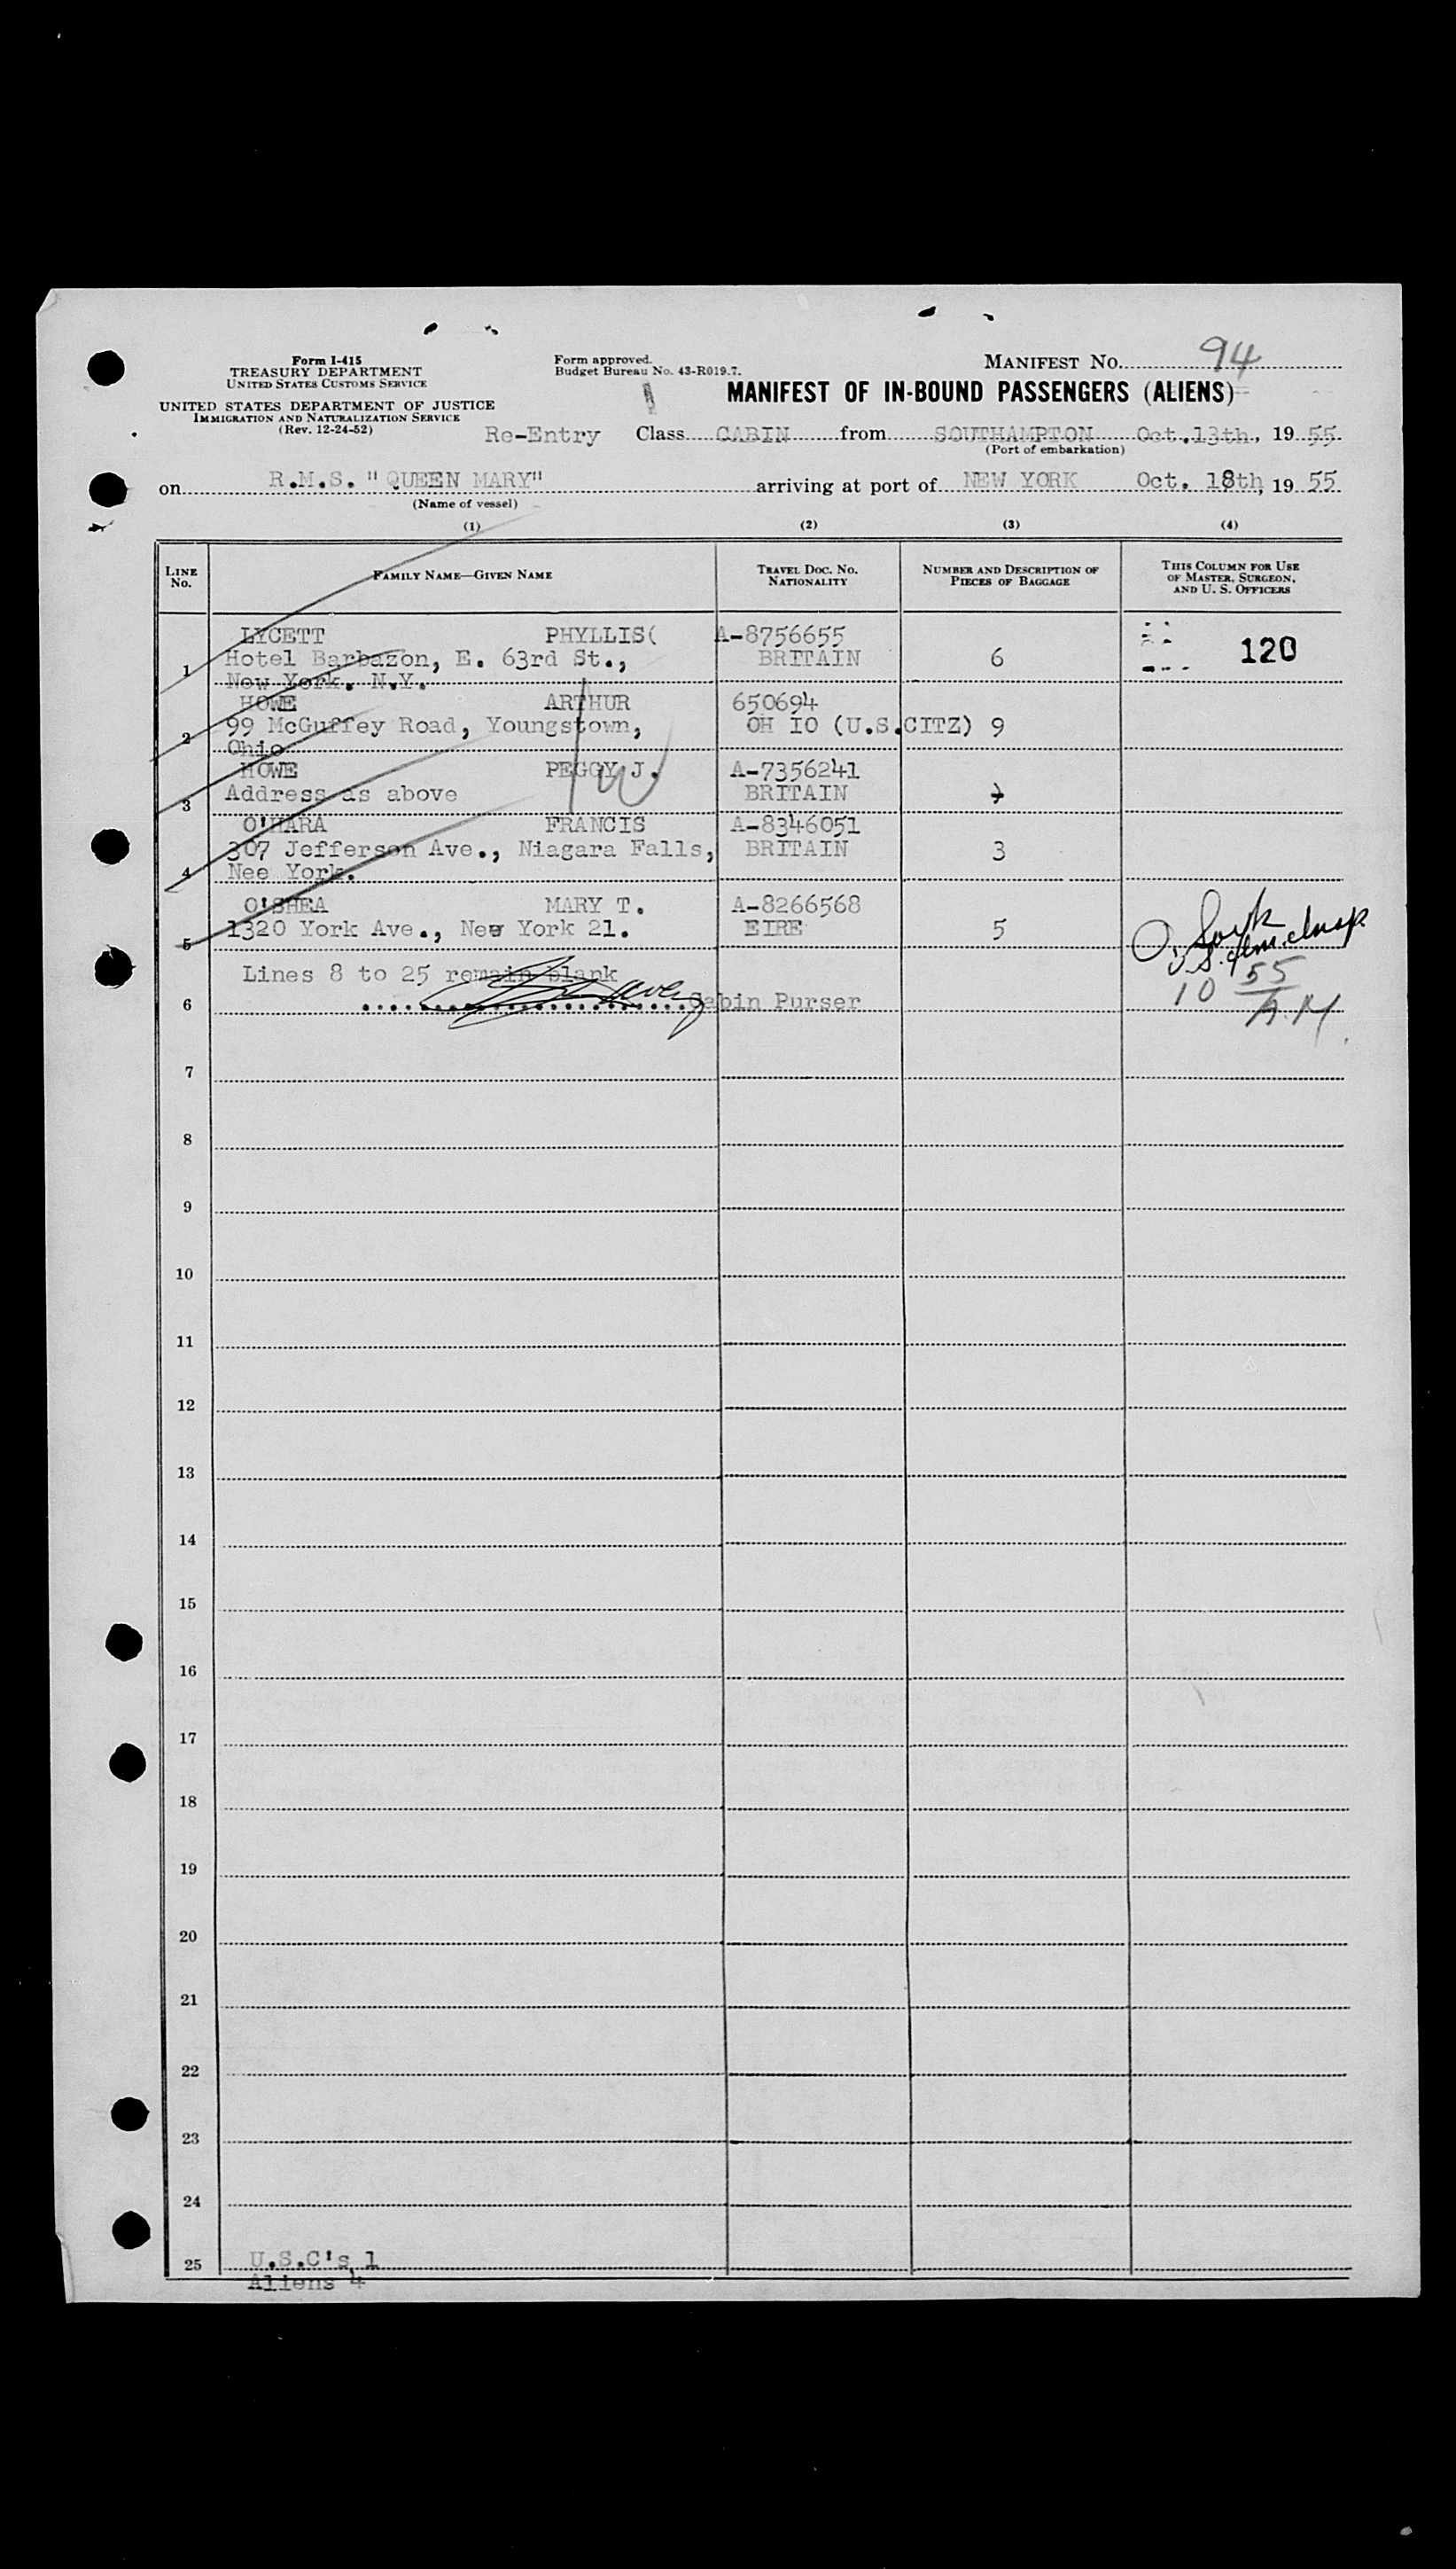 Form I-415
TREASURY DEPARTMENT
UNITED STATES CUSTOMS SERVICE
UNITED STATES DEPARTMENT OF JUSTICE
IMMIGRATION AND NATURALIZATION SERVICE
(Rev. 12-24-52)
Form approved.
Budget Bureau No. 43-R019.7.
MANIFEST NO. 94
MANIFEST OF IN-BOUND PASSENGERS (ALIENS)
Re-Entry Class CABIN from SOUTHAMPTON Oct.13th, 19 55
(Port of embarkation)
on R.M.S. "QUEEN MARY" arriving at port of NEW YORK Oct. 18th, 19 55
(Name of vessel)
(1) (2) (3) (4)
LINE NO. FAMILY NAME—GIVEN NAME TRAVEL DOC. NO. NATIONALITY NUMBER AND DESCRIPTION OF PIECES OF BAGGAGE THIS COLUMN FOR USE OF MASTER, SURGEON, AND U. S. OFFICERS
LYCETT PHYLLIS( A-8756655
1 Hotel Barbazon, E. 63rd St., BRITAIN 6 120
New York. N.Y.
HOWE ARTHUR 650694
2 99 McGuffey Road, Youngstown, OH IO (U.S.CITZ) 9
Ohio
HOWE PEGGY J. A-7356241
3 Address as above BRITAIN
O'HARA FRANCIS A-8346051
307 Jefferson Ave., Niagara Falls, BRITAIN 3
4 Nee York.
O'SHEA MARY T. A-8266568
5 1320 York Ave., New York 21. EIRE 5
Lines 8 to 25 remain blank
6 Cabin Purser
10 55 A.M.
7
8
9
10
11
12
13
14
15
16
17
18
19
20
21
22
23
24
25 U.S.C's 1
Aliens 4